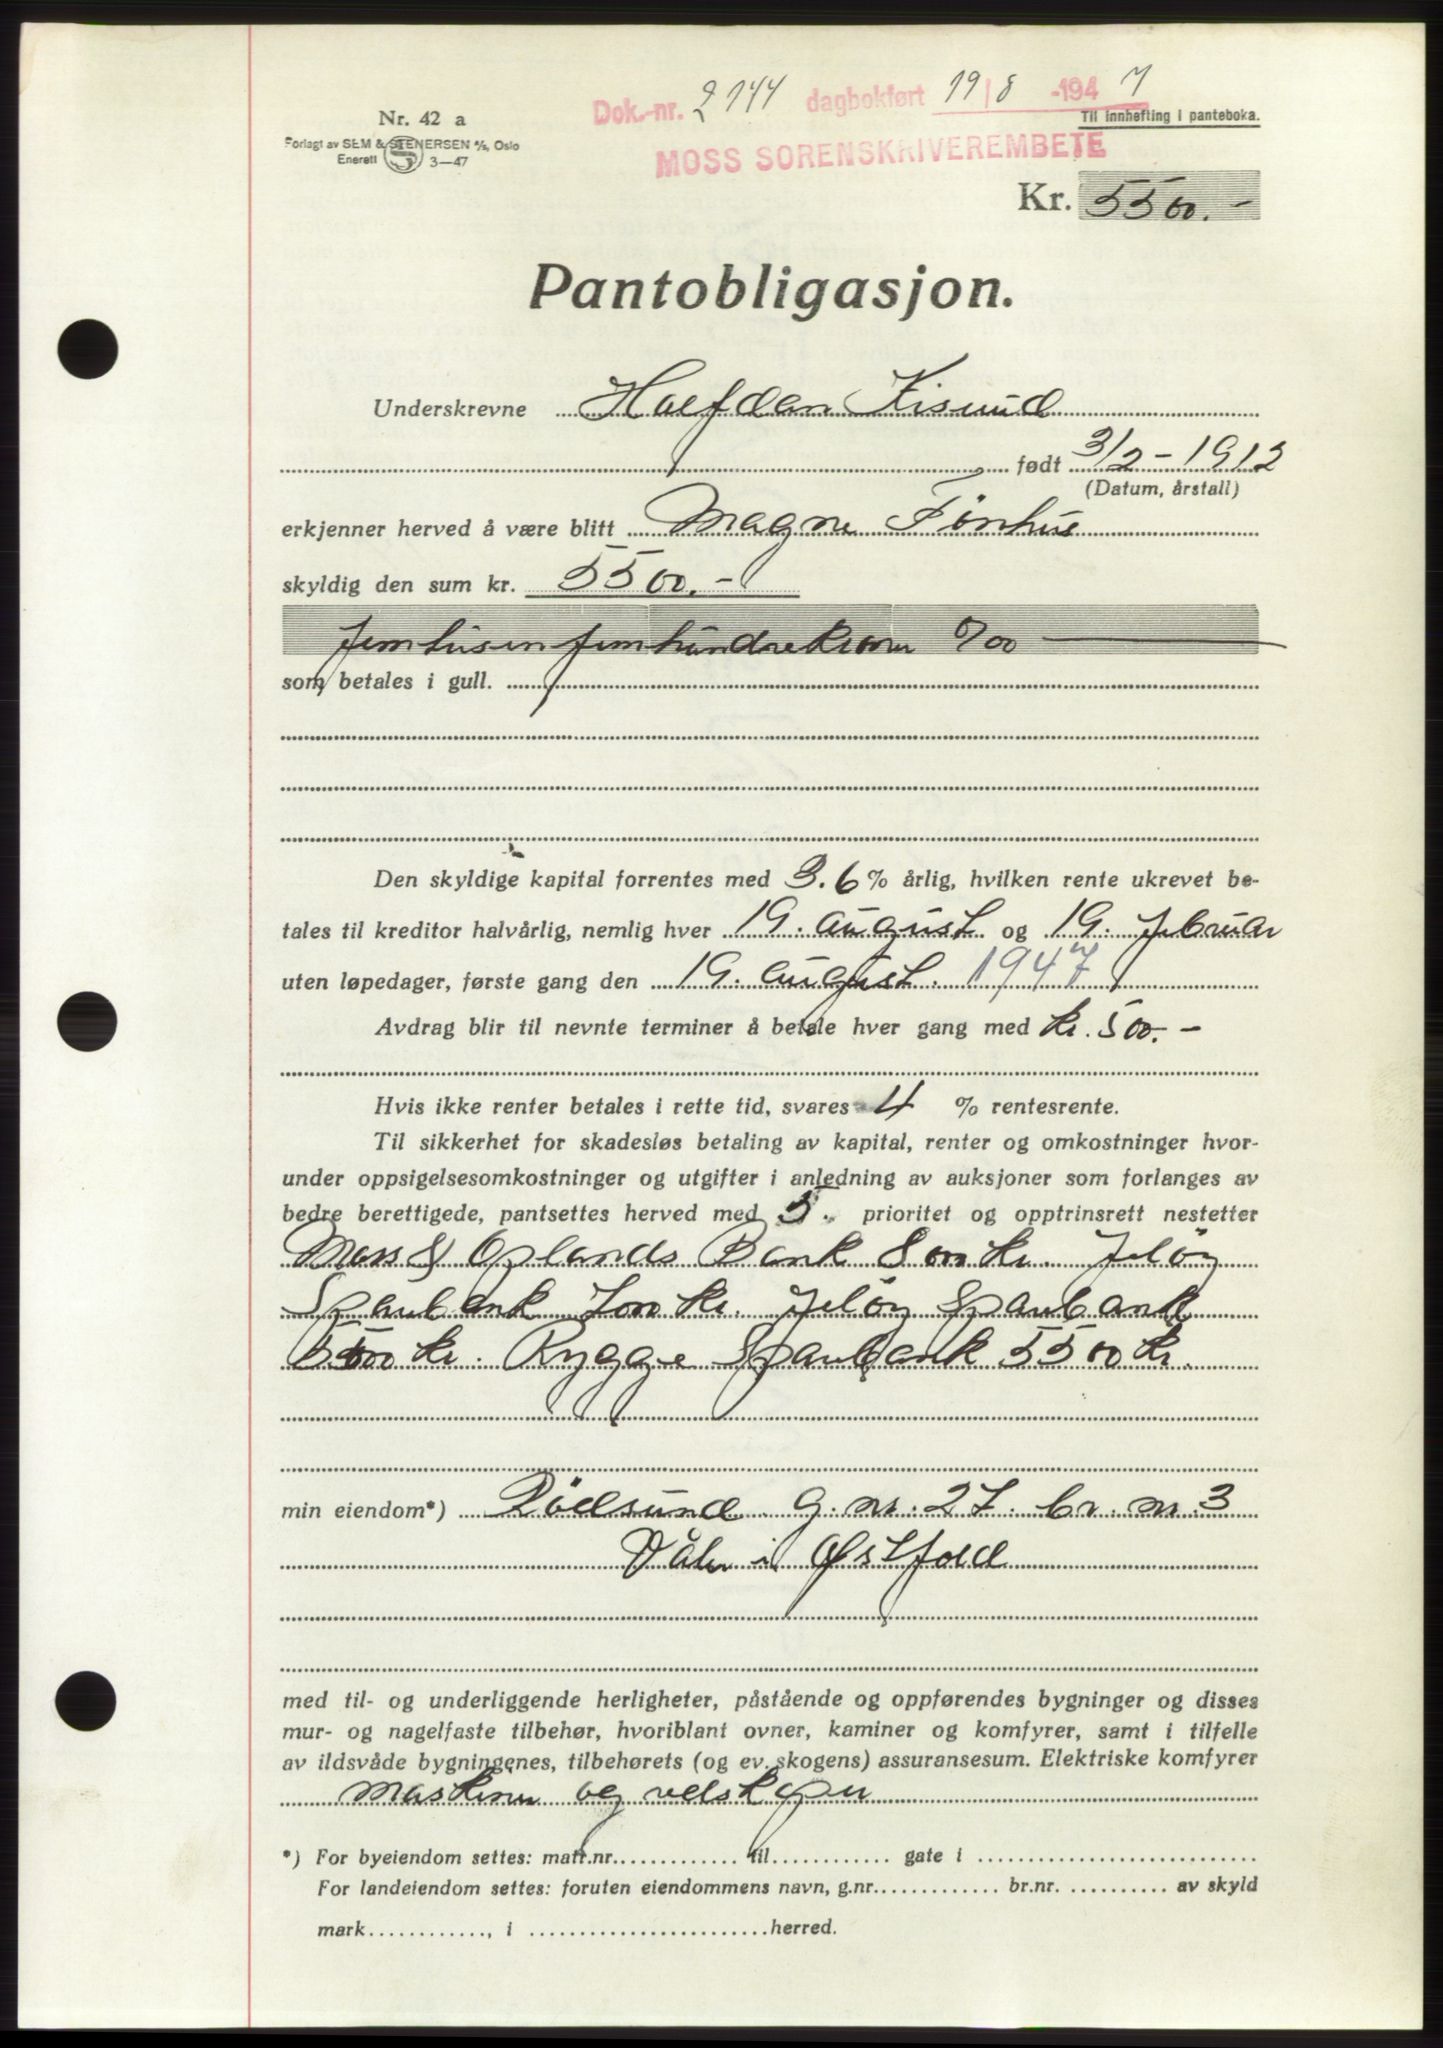 Dok.-nr. 2144 dagbokført 19/8 -1947
Nr. 42 a
Til innhefting i panteboka.
Forlagt av SEM & STENERSEN A/S, Oslo
Enerett 3—47
MOSS SORENSKRIVEREMBETE
Kr. 5500.-
Pantobligasjon.
Underskrevne Halfdan
født 3/2-1912
(Datum, årstall)
erkjenner herved å være blitt Magne Fønhus
skyldig den sum kr. 5500.-
femtusenfemhundrekroner 0/00
som betales i gull.
Den skyldige kapital forrentes med 3.6 % årlig, hvilken rente ukrevet be-
tales til kreditor halvårlig, nemlig hver 19. august og 19. februar
uten løpedager, første gang den 19. august. 1947
Avdrag blir til nevnte terminer å betale hver gang med kr. 500.-
Hvis ikke renter betales i rette tid, svares 4 % rentesrente.
Til sikkerhet for skadesløs betaling av kapital, renter og omkostninger hvor-
under oppsigelsesomkostninger og utgifter i anledning av auksjoner som forlanges av
bedre berettigede, pantsettes herved med 5. prioritet og opptrinsrett nestetter
Moss & Oplands Bank kr. Jeløy
Sparebank kr. Jeløy Sparebank
5500 kr. Rygge Sparebank 5500 kr.
min eiendom*) Rødsund g. nr. 27. br. nr. 3
Våler i Østfold
med til- og underliggende herligheter, påstående og oppførendes bygninger og disses
mur- og nagelfaste tilbehør, hvoriblant ovner, kaminer og komfyrer, samt i tilfelle
av ildsvåde bygningenes, tilbehørets (og ev. skogens) assuransesum. Elektriske komfyrer
maskiner og redskaper
*) For byeiendom settes: matr.nr. til gate i
For landeiendom settes: foruten eiendommens navn, g.nr. br.nr. av skyld
mark , i herred.